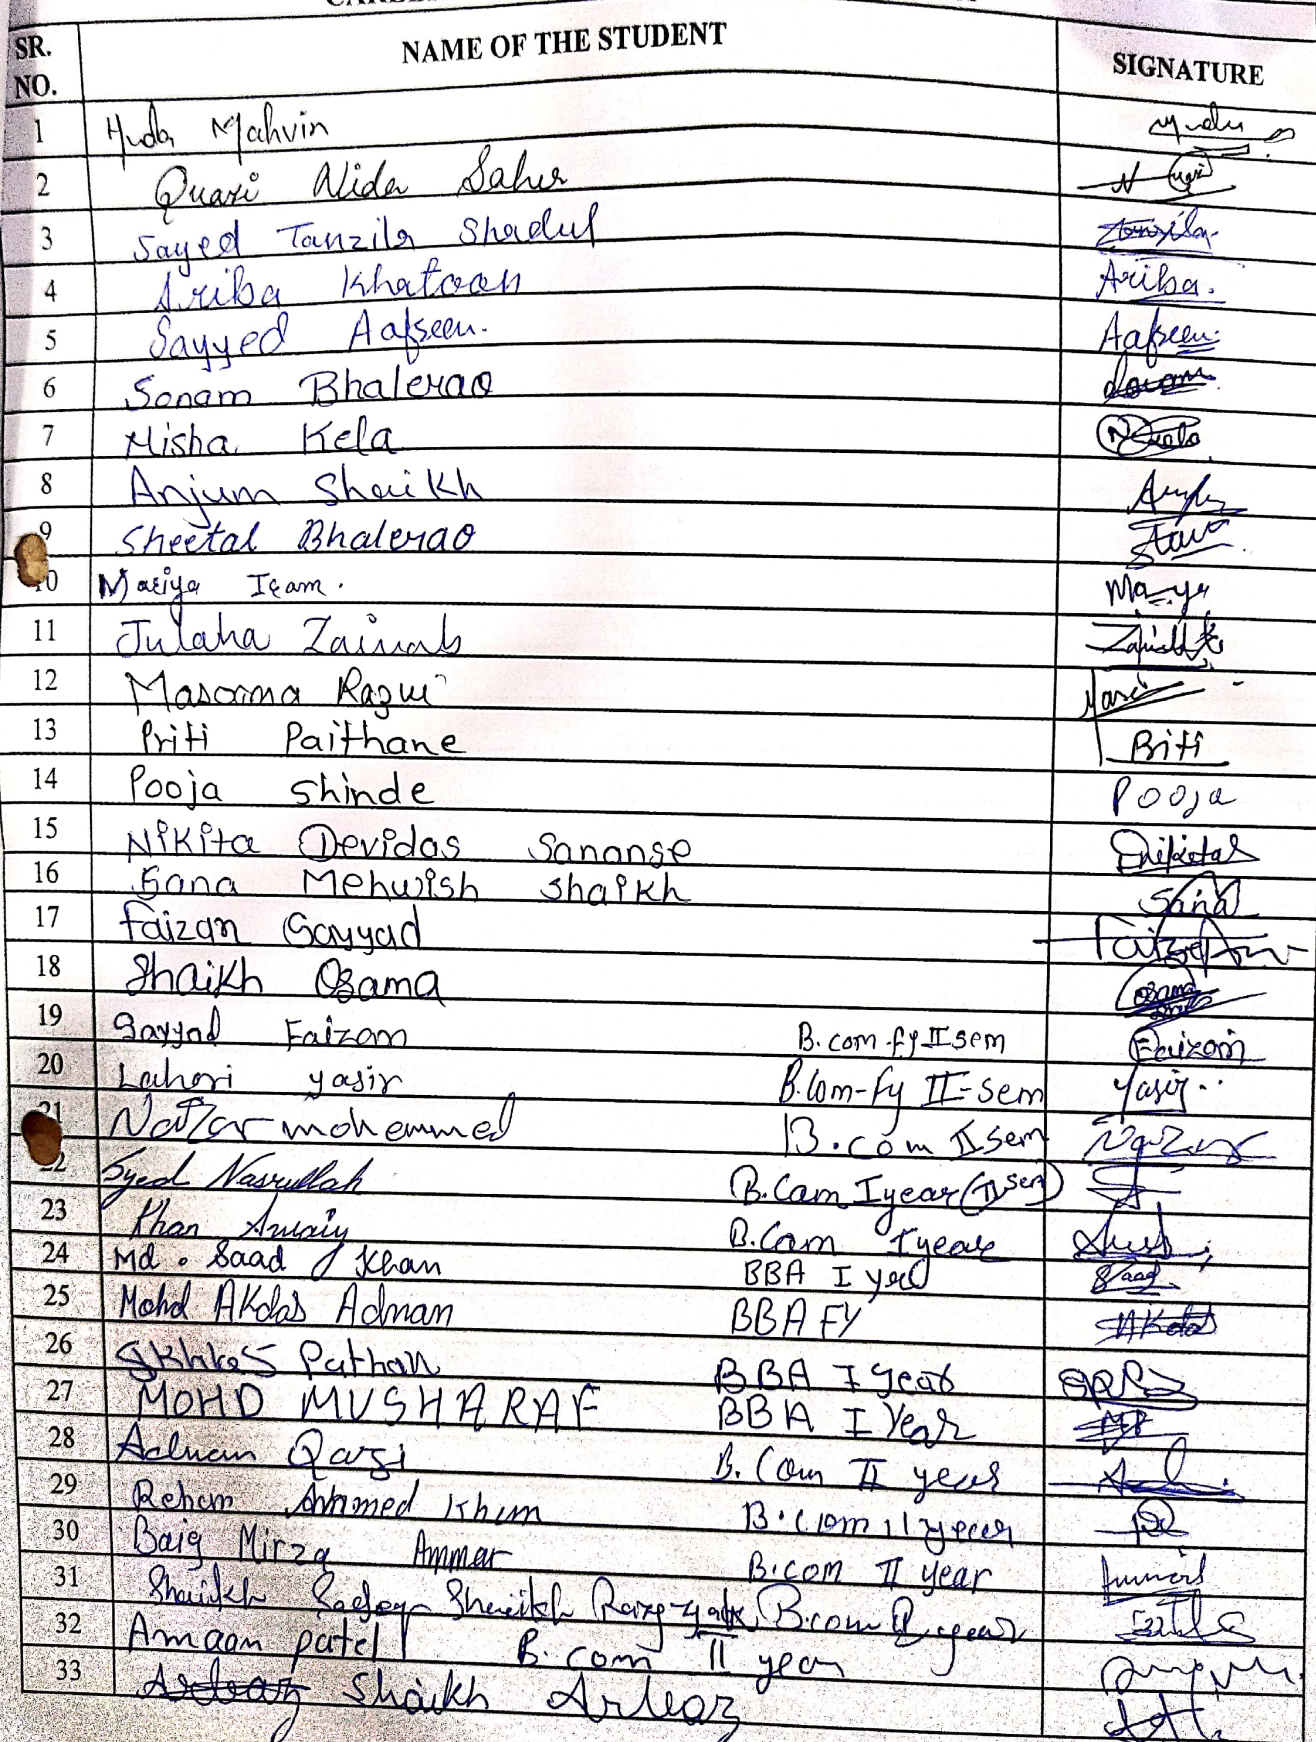 SR. NO. NAME OF THE STUDENT SIGNATURE
1 Huda Mahvin
2 Quazi Nida Saher
3 Sayed Tanzila Shadul Tanzila
4 Ariba Khatoon Ariba.
5 Sayyed Aafseen. Aafseen.
6 Sonam Bhalerao Sonam
7 Misha Kela
8 Anjum Shaikh
9 Sheetal Bhalerao
10 Mariya Iram.
11 Julaha Zainab
12 Masooma Razvi
13 Priti Paithane Priti
14 Pooja Shinde Pooja
15 Nikita Devidas Sananse
16 Sana Mehwish Shaikh Sana
17 Faizan Sayyad
18 Shaikh Osama Osama
19 Sayyad Faizan B.com fy II sem Faizan
20 Lahori yasir B.Com-Fy II-sem Yasir..
21 mohemmed B.com II sem
22 Syed Nasrullah B.Com I year (II sem)
23 Khan B.Com I year
24 Md. Saad Khan BBA I year Saad
25 Mohd Akdas Adnan BBA FY Akdas
26 Pathan BBA I year
27 MOHD MUSHARAF BBA I Year
28 Adnan Qazi B.Com II year
29 Ahmed Khan B.com II year
30 Baig Mirza Ammar B.com II year
31 Shaikh Shaikh B.com II year
32 Amaan patel B.com II year
33 Shaikh Arbaz